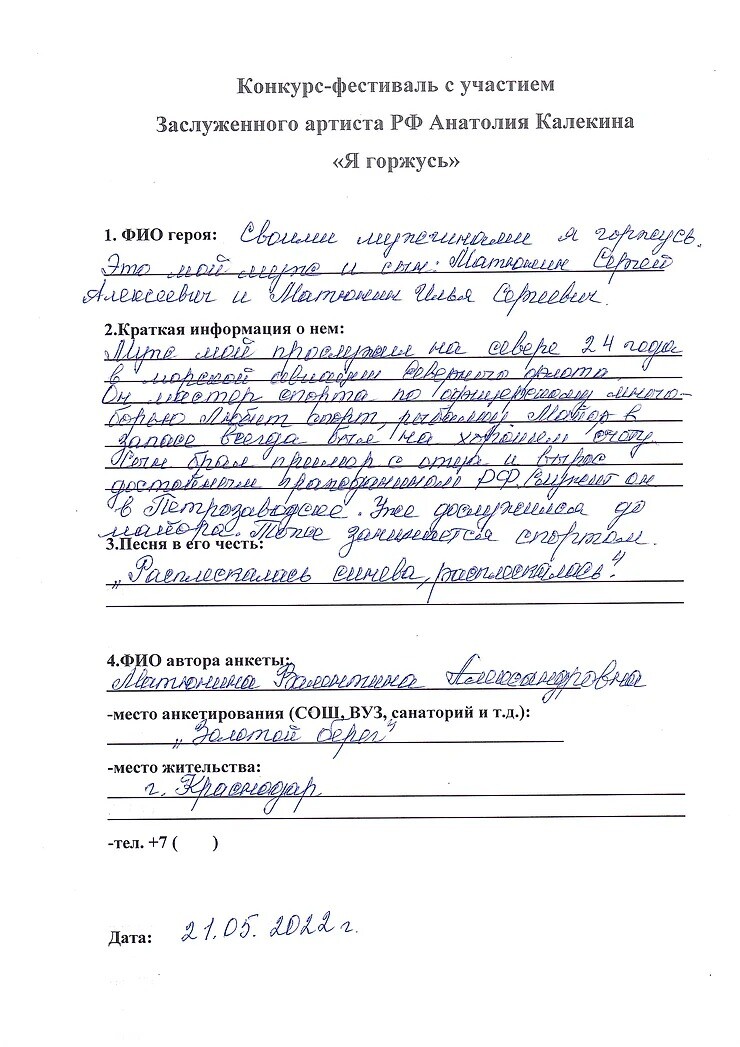 Конкурс-фестиваль с участием
Заслуженного артиста РФ Анатолия Калекина
«Я горжусь»
1. ФИО героя: Своими мужчинами я горжусь.
Это мой муж и сын: Матюнин Сергей
Алексеевич и Матюнин Илья Сергеевич.
2.Краткая информация о нем:
Муж мой прослужил на севере 24 года
в морской авиации Северного флота.
Он мастер спорта по офицерскому много-
борью Любит спорт, рыбалку. Майор в
запасе всегда был на хорошем счету.
Сын брал пример с отца и вырос
достойным гражданином РФ. Служит он
в Петрозаводске. Уже дослужился до
майора. Тоже занимается спортом.
3.Песня в его честь:
„Расплескалась синева, расплескалась"
4.ФИО автора анкеты:
Матюнина Валентина Александровна
-место анкетирования (СОШ, ВУЗ, санаторий и т.д.):
„Золотой берег"
-место жительства:
г. Краснодар.
-тел. +7 ( )
Дата: 21.05.2022 г.